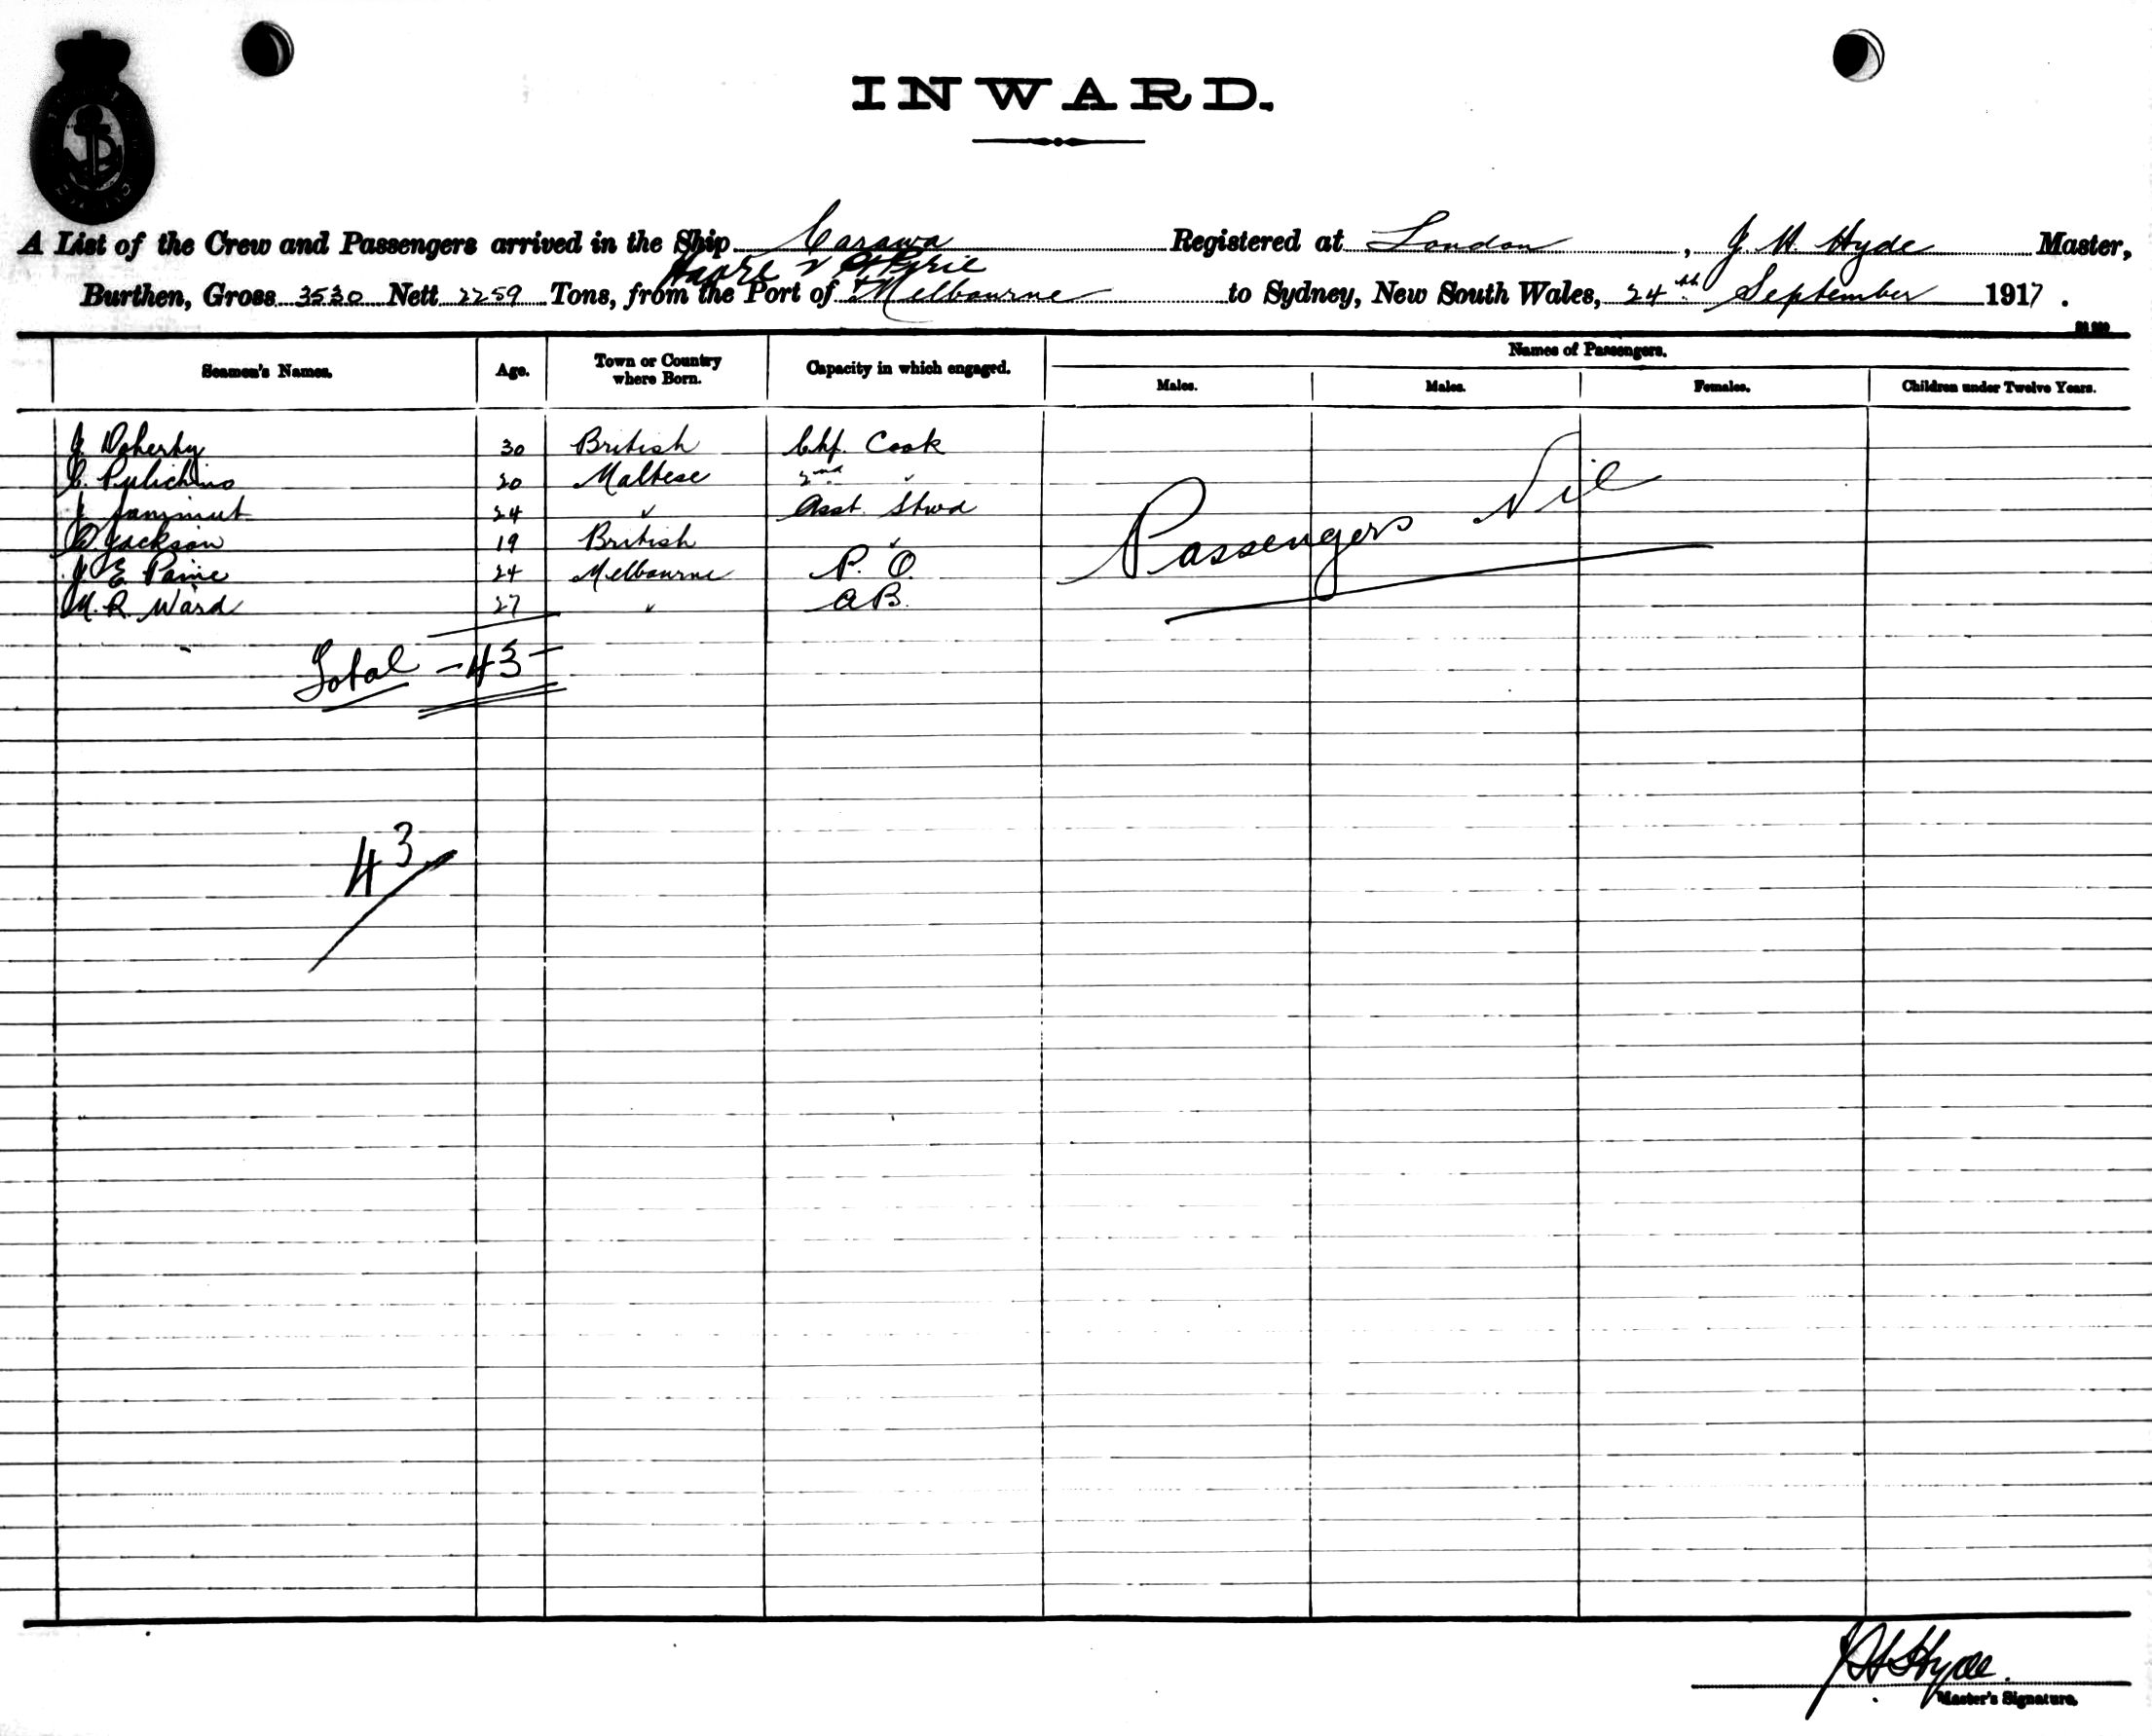 INWARD.
A List of the Crew and Passengers arrived in the Ship Carawa Registered at London, J. H. Hyde Master,
Havre & Pt Pirie
Burthen, Gross 3530 Nett 2259 Tons, from the Port of Melbourne to Sydney, New South Wales, 24th September 1917.
Names of Passengers.
Seamen's Names. Age. Town or Country where Born. Capacity in which engaged. Males. Males. Females. Children under Twelve Years.
J. Doherty 30 British Chf. Cook
C. Pulichino 20 Maltese 2nd "
J. Sammut 24 " Asst. Stwd
Jackson 19 British "
J. E. Paine 24 Melbourne P. O.
M. R. Ward 27 " A B.
Passengers Nil
Total - 43 -
43
J H Hyde.
Master's Signature.